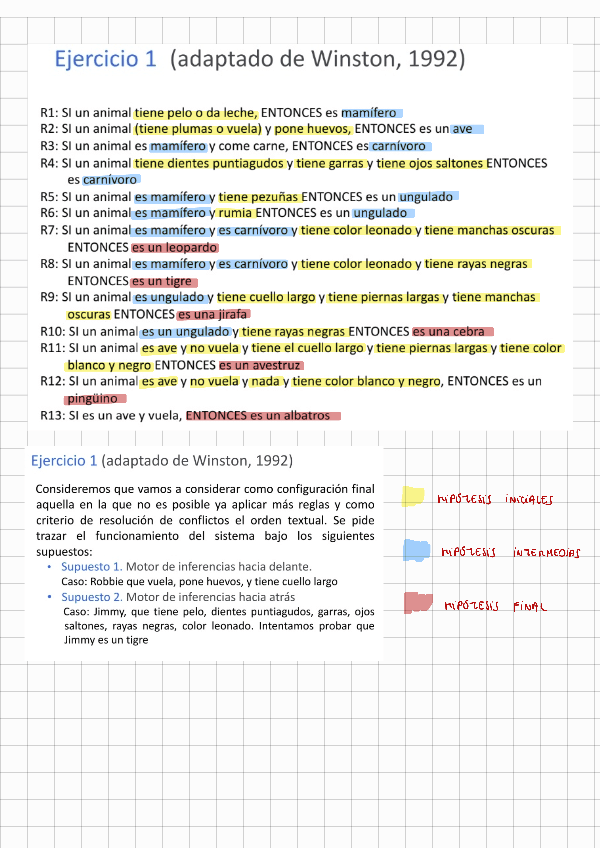 Ejercicio 1 (adaptado de Winston, 1992)
R1: SI un animal tiene pelo o da leche, ENTONCES es mamífero
R2: SI un animal (tiene plumas o vuela) y pone huevos, ENTONCES es un ave
R3: SI un animal es mamífero y come carne, ENTONCES es carnívoro
R4: SI un animal tiene dientes puntiagudos y tiene garras y tiene ojos saltones ENTONCES
es carnívoro
R5: SI un animal es mamífero y tiene pezuñas ENTONCES es un ungulado
R6: SI un animal es mamífero y rumia ENTONCES es un ungulado
R7: SI un animal es mamífero y es carnívoro y tiene color leonado y tiene manchas oscuras
ENTONCES es un leopardo
R8: SI un animal es mamífero y es carnívoro y tiene color leonado y tiene rayas negras
ENTONCES es un tigre
R9: SI un animal es ungulado y tiene cuello largo y tiene piernas largas y tiene manchas
oscuras ENTONCES es una jirafa
R10: SI un animal es un ungulado y tiene rayas negras ENTONCES es una cebra
R11: SI un animal es ave y no vuela y tiene el cuello largo y tiene piernas largas y tiene color
blanco y negro ENTONCES es un avestruz
R12: SI un animal es ave y no vuela y nada y tiene color blanco y negro, ENTONCES es un
pingüino
R13: SI es un ave y vuela, ENTONCES es un albatros
Ejercicio 1 (adaptado de Winston, 1992)
Consideremos que vamos a considerar como configuración final
aquella en la que no es posible ya aplicar más reglas y como
criterio de resolución de conflictos el orden textual. Se pide
trazar el funcionamiento del sistema bajo los siguientes
supuestos:
• Supuesto 1. Motor de inferencias hacia delante.
Caso: Robbie que vuela, pone huevos, y tiene cuello largo
• Supuesto 2. Motor de inferencias hacia atrás
Caso: Jimmy, que tiene pelo, dientes puntiagudos, garras, ojos
saltones, rayas negras, color leonado. Intentamos probar que
Jimmy es un tigre
HIPÓTESIS INICIALES
HIPÓTESIS INTERMEDIAS
HIPÓTESIS FINAL